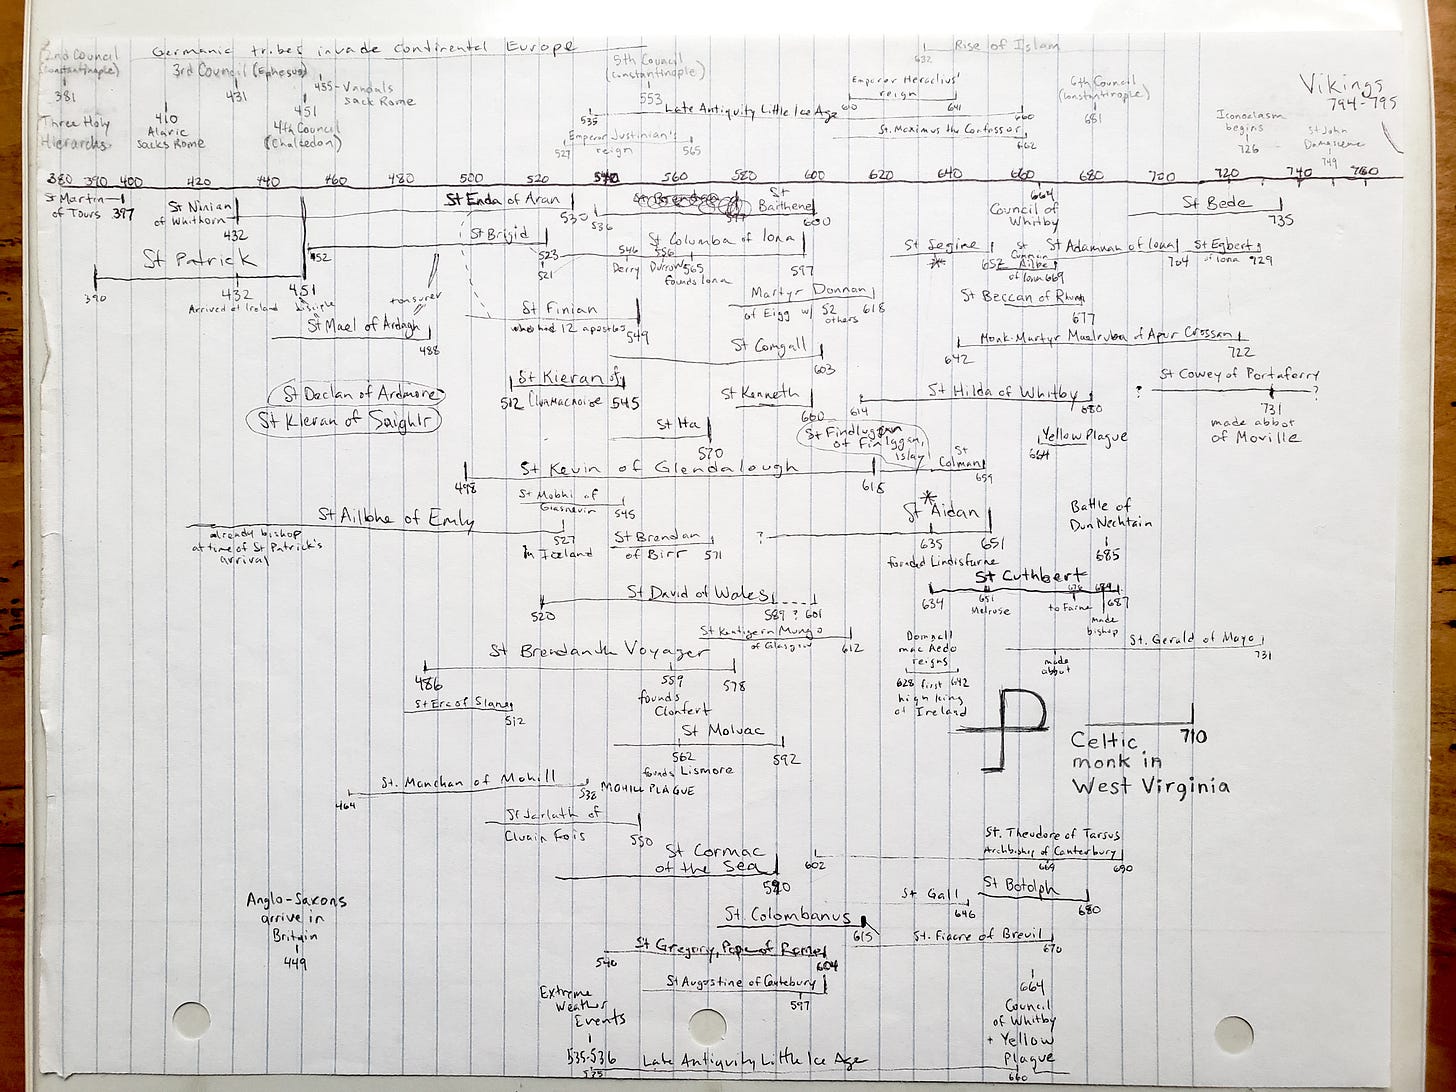 2nd Council
(Constantinople)
381
Three Holy
Hierarchs
Germanic tribes invade continental Europe
3rd Council (Ephesus)
431
410
Alaric
sacks Rome
455 - Vandals
sack Rome
451
4th Council
(Chalcedon)
5th Council
(Constantinople)
553
535 Late Antiquity Little Ice Age 660
Emperor Justinian's
527 reign 565
Rise of Islam
632
Emperor Heraclius'
reign
610 641
St. Maximus the Confessor
662
6th Council
(Constantinople)
681
Iconoclasm
begins
726
St John
Damascene
749
Vikings
794-795
380 390 400 420 440 460 480 500 520 540 560 580 600 620 640 660 680 700 720 740 760
St Martin
of Tours 397
St Ninian
of Whithorn
432
St Patrick
390
432
Arrived at Ireland
451
disciple
St Mael of Ardagh
488
tonsurer
St Enda of Aran
530
St Brigid
452
523
521
St Brendan
577
536
St
Baithene
600
St Columba of Iona
546
Derry
556
Durrow
565
founds Iona
597
St Finian
who had 12 apostles
549
Martyr Donnan
of Eigg w/ 52
others
618
St Comgall
603
664
Council of
Whitby
St Segine
652
St
Cumman
Ailbe
of Iona 669
St Adamnan of Iona
704
St Egbert
of Iona 729
St Bede
735
St Beccan of Rhum
677
Monk-Martyr Maelruba of Apur Crossan
642
722
St Declan of Ardmore
St Kieran of Saighir
St Kieran of
Clonmacnoise
512
545
St Kenneth
600
St Hilda of Whitby
614
680
St Cowey of Portaferry
?
?
731
made abbot
of Moville
St Ita
570
St Findlugan
of Finlggan,
Islay
Yellow Plague
664
St
Colman
659
St Kevin of Glendalough
498
618
St Mobhi of
Glasnevin
545
St Ailbhe of Emly
already bishop
at time of St Patrick's
arrival
527
in Iceland
St Brendan
of Birr
571
St Aidan
?
635
founded Lindisfarne
651
Battle of
Dun Nechtain
685
St Cuthbert
634
651
Melrose
676
to Farne
684
made
bishop
687
St David of Wales
520
589 ? 601
St Kentigern Mungo
of Glasgow
612
Domnall
mac Aedo
reigns
628 first 642
high king
of Ireland
St. Gerald of Mayo
made
abbot
731
St Brendan the Voyager
486
559
founds
Clonfert
578
St Erc of Slane
512
St Moluac
562
founds Lismore
592
710
Celtic
monk in
West Virginia
St. Manchan of Mohill
464
538 MOHILL PLAGUE
St Jarlath of
Cluain Fois
550
St Cormac
of the Sea
590
St. Theodore of Tarsus
Archbishop of Canterbury
602
669
690
St Gall
646
St Botolph
680
Anglo-Saxons
arrive in
Britain
449
St. Colombanus
615
St. Fiacre of Breuil
670
St Gregory, Pope of Rome
540
604
St Augustine of Cantebury
597
Extreme
Weather
Events
535-536
Late Antiquity Little Ice Age
535
660
664
Council
of Whitby
+ Yellow
Plague